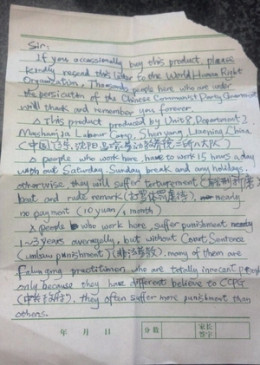 Sir:
If you occassionally buy this product, please
kindly resend this letter to the World Human Right
Organization. Thousands people here who are under
the persicution of the Chinese Communist Party Government
will thank and remember you forever.
This product produced by Unit 8, Department 2,
Masanjia Labour Camp, Shen yang, Liaoning, China
(中国,辽宁,沈阳,马三家
people who work here, have to work 15 hours a day
with out Saturday, Sunday break and any holidays,
otherwise, they will suffer torturement
beat and rude remark nearly
no payment (10 yuan/1 month)
people who work here, suffer punishment nearly
1~3 years averagelly, but without Court Sentence
(unlaw punishment) (非法劳教) many of them are
Falun gong practitioner, who are totally innocent people
only because they have different believe to CCPG
they often suffer more punishment than
others.
年 月 日
分数 家长签字